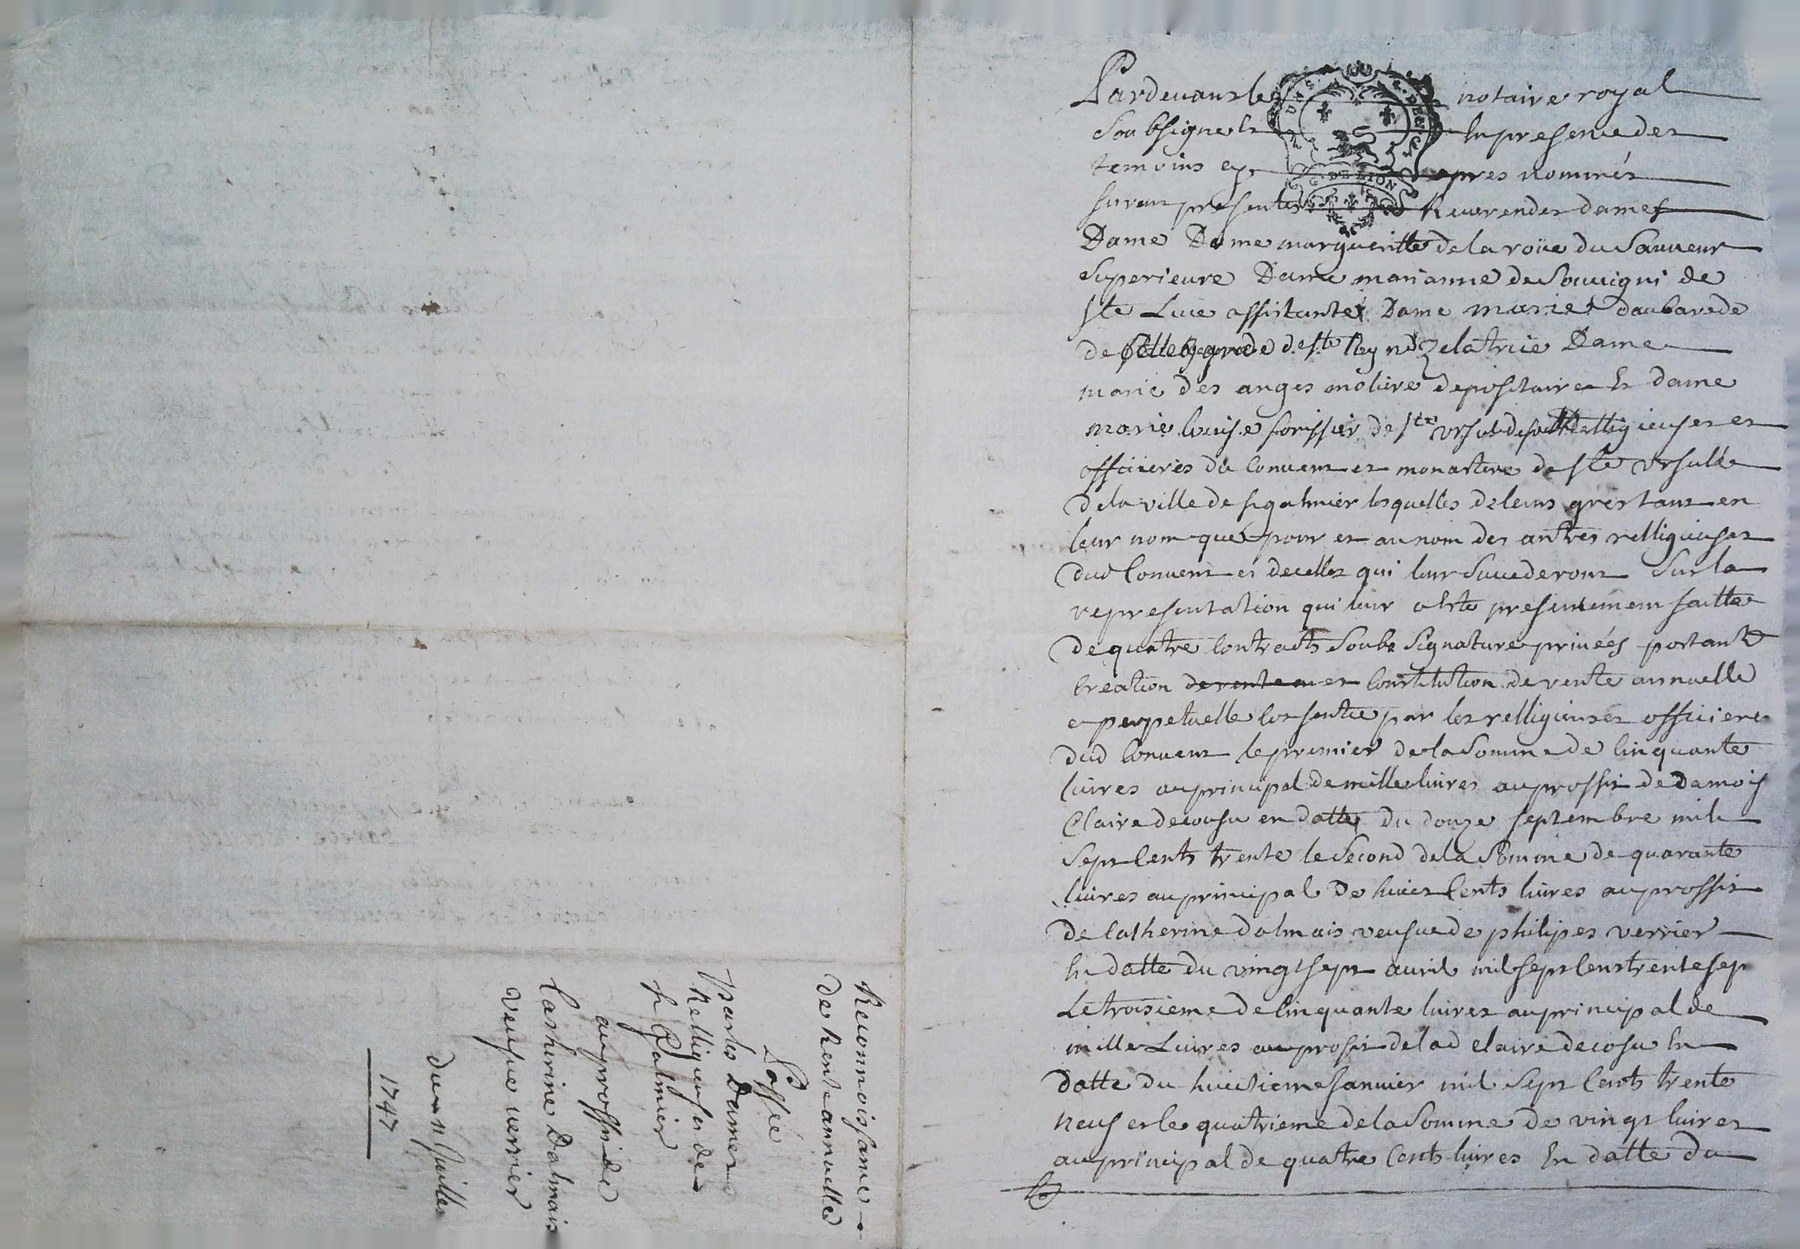 Pardevant le notaire royal
Soubsigné et En presence des
temoins cy apres nommés
furent presentes Reverendes dames
Dame Dame margueritte de la roüe du Sauveur
Superieure Dame marianne de Souvigni de
Ste Luce assistante Dame marie daubarede
de Ste zelatrice Dame
marie des anges moliere depositaire Et dame
marie Louise forissier de Ste Ursule Relligieuses et
officieres du Convent et monastere de Ste Ursulle
de la ville de St galmier lesquelles de leurs grés tant en
leur nom que pour et au nom des autres relligieuses
dud Convent et decelles qui leur Succederont Sur la
representation qui leur a Eté presentement faitte
de quatre Contracts Soubs Signature privées portant
Creation de rente en et Constitution de rente annuelle
e perpetuelle Consentie par les relligieuses officieres
dud Convent le premier de la Somme de Cinquante
livres au principal de mille livres au proffit de damois
Claire decousu en datte du douze septembre mil
Sept Cents trente le Second de la Somme de quarante
livres au principal de huict Cents livres au proffit
de Catherine Dalmais veufue de philipes verrier
En datte du vingt sept avril mil sept Cent trente sep
Le troisieme de Cinquante livres au principal de
mille Livres au profit de lad claire decosu En
datte du huictieme Janvier mil Sept Cents trente
neuf et le quatrieme de la Somme de vingt livres
au principal de quatre Cents livres En datte du
Reconnoissance
de Rente annuelle
Passée
Par les Dames
Relligieuses de
St Galmier
au proffit de
Catherine Dalmais
veufue verrier
Du 11 Juillet
1747